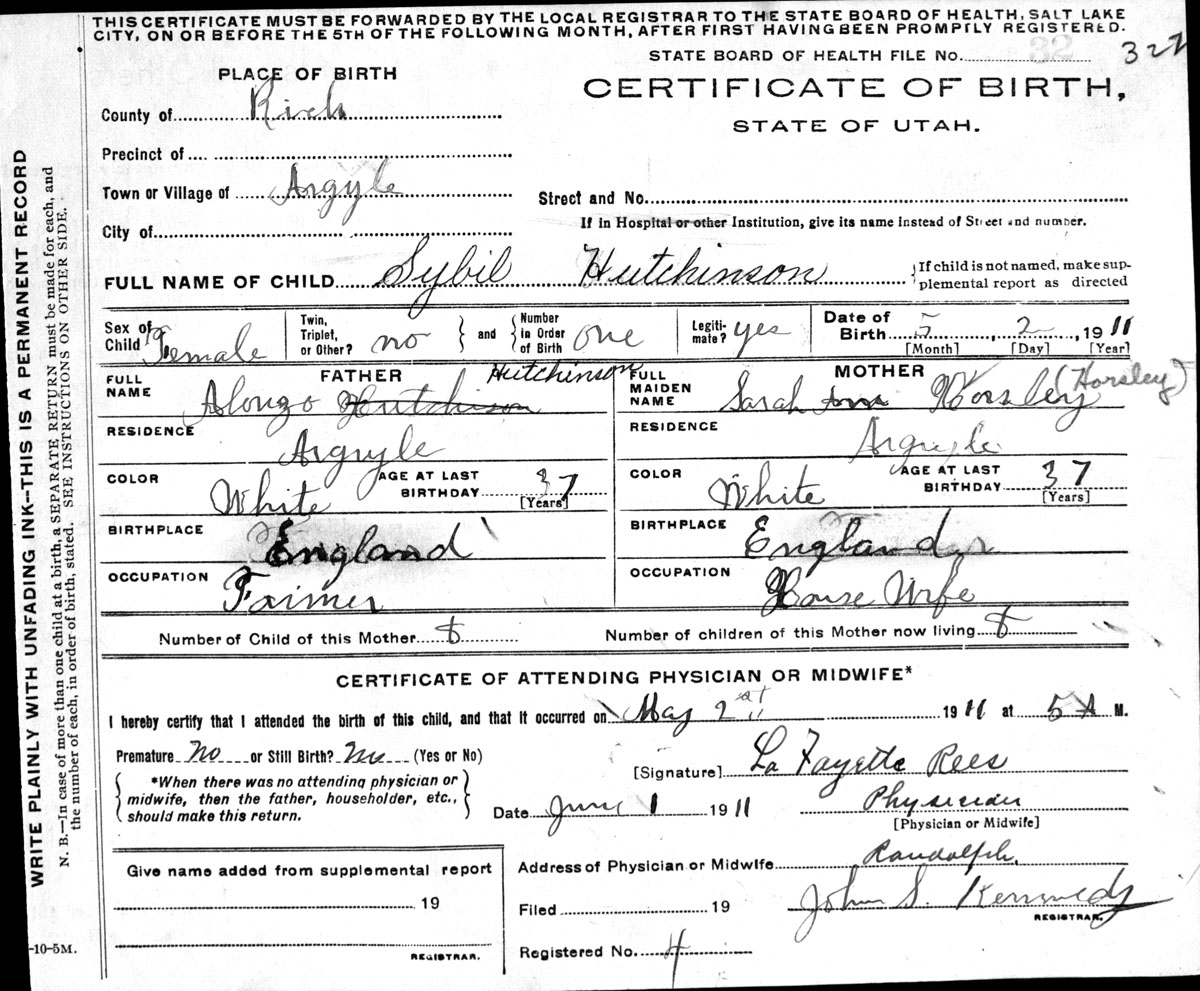 THIS CERTIFICATE MUST BE FORWARDED BY THE LOCAL REGISTRAR TO THE STATE BOARD OF HEALTH, SALT LAKE
CITY, ON OR BEFORE THE 5TH OF THE FOLLOWING MONTH, AFTER FIRST HAVING BEEN PROMPTLY REGISTERED.
STATE BOARD OF HEALTH FILE No. 32 327
PLACE OF BIRTH
CERTIFICATE OF BIRTH,
STATE OF UTAH.
County of Rich
Precinct of
Town or Village of Argyle
Street and No.
City of
If in Hospital or other Institution, give its name instead of Street and number.
FULL NAME OF CHILD Sybil Hutchinson
If child is not named, make sup-
plemental report as directed
Sex of Child Female
Twin, Triplet, or Other? no
and Number in Order of Birth one
Legiti-mate? yes
Date of Birth 5, 2, 1911
[Month] [Day] [Year]
FATHER
FULL NAME Alonzo Hutchison Hutchinson
MOTHER
FULL MAIDEN NAME Sarah Ann Horsley (Horsley)
RESIDENCE Argyle
RESIDENCE Argyle
COLOR White AGE AT LAST BIRTHDAY 37 [Years]
COLOR White AGE AT LAST BIRTHDAY 37 [Years]
BIRTHPLACE England
BIRTHPLACE England
OCCUPATION Farmer
OCCUPATION House Wife
Number of Child of this Mother
Number of children of this Mother now living
CERTIFICATE OF ATTENDING PHYSICIAN OR MIDWIFE*
I hereby certify that I attended the birth of this child, and that it occurred on May 2 1911 at 5 A M.
Premature No or Still Birth? No (Yes or No)
*When there was no attending physician or
midwife, then the father, householder, etc.,
should make this return.
[Signature] La Fayette Rees
Date June 1 1911
Physician
[Physician or Midwife]
Give name added from supplemental report
19
REGISTRAR.
Address of Physician or Midwife Randolph.
Filed 19 John S. Kennedy
REGISTRAR.
Registered No. 4
WRITE PLAINLY WITH UNFADING INK--THIS IS A PERMANENT RECORD
N. B.--In case of more than one child at a birth, a SEPARATE RETURN must be made for each, and
the number of each, in order of birth, stated. SEE INSTRUCTIONS ON OTHER SIDE.
-10-5M.